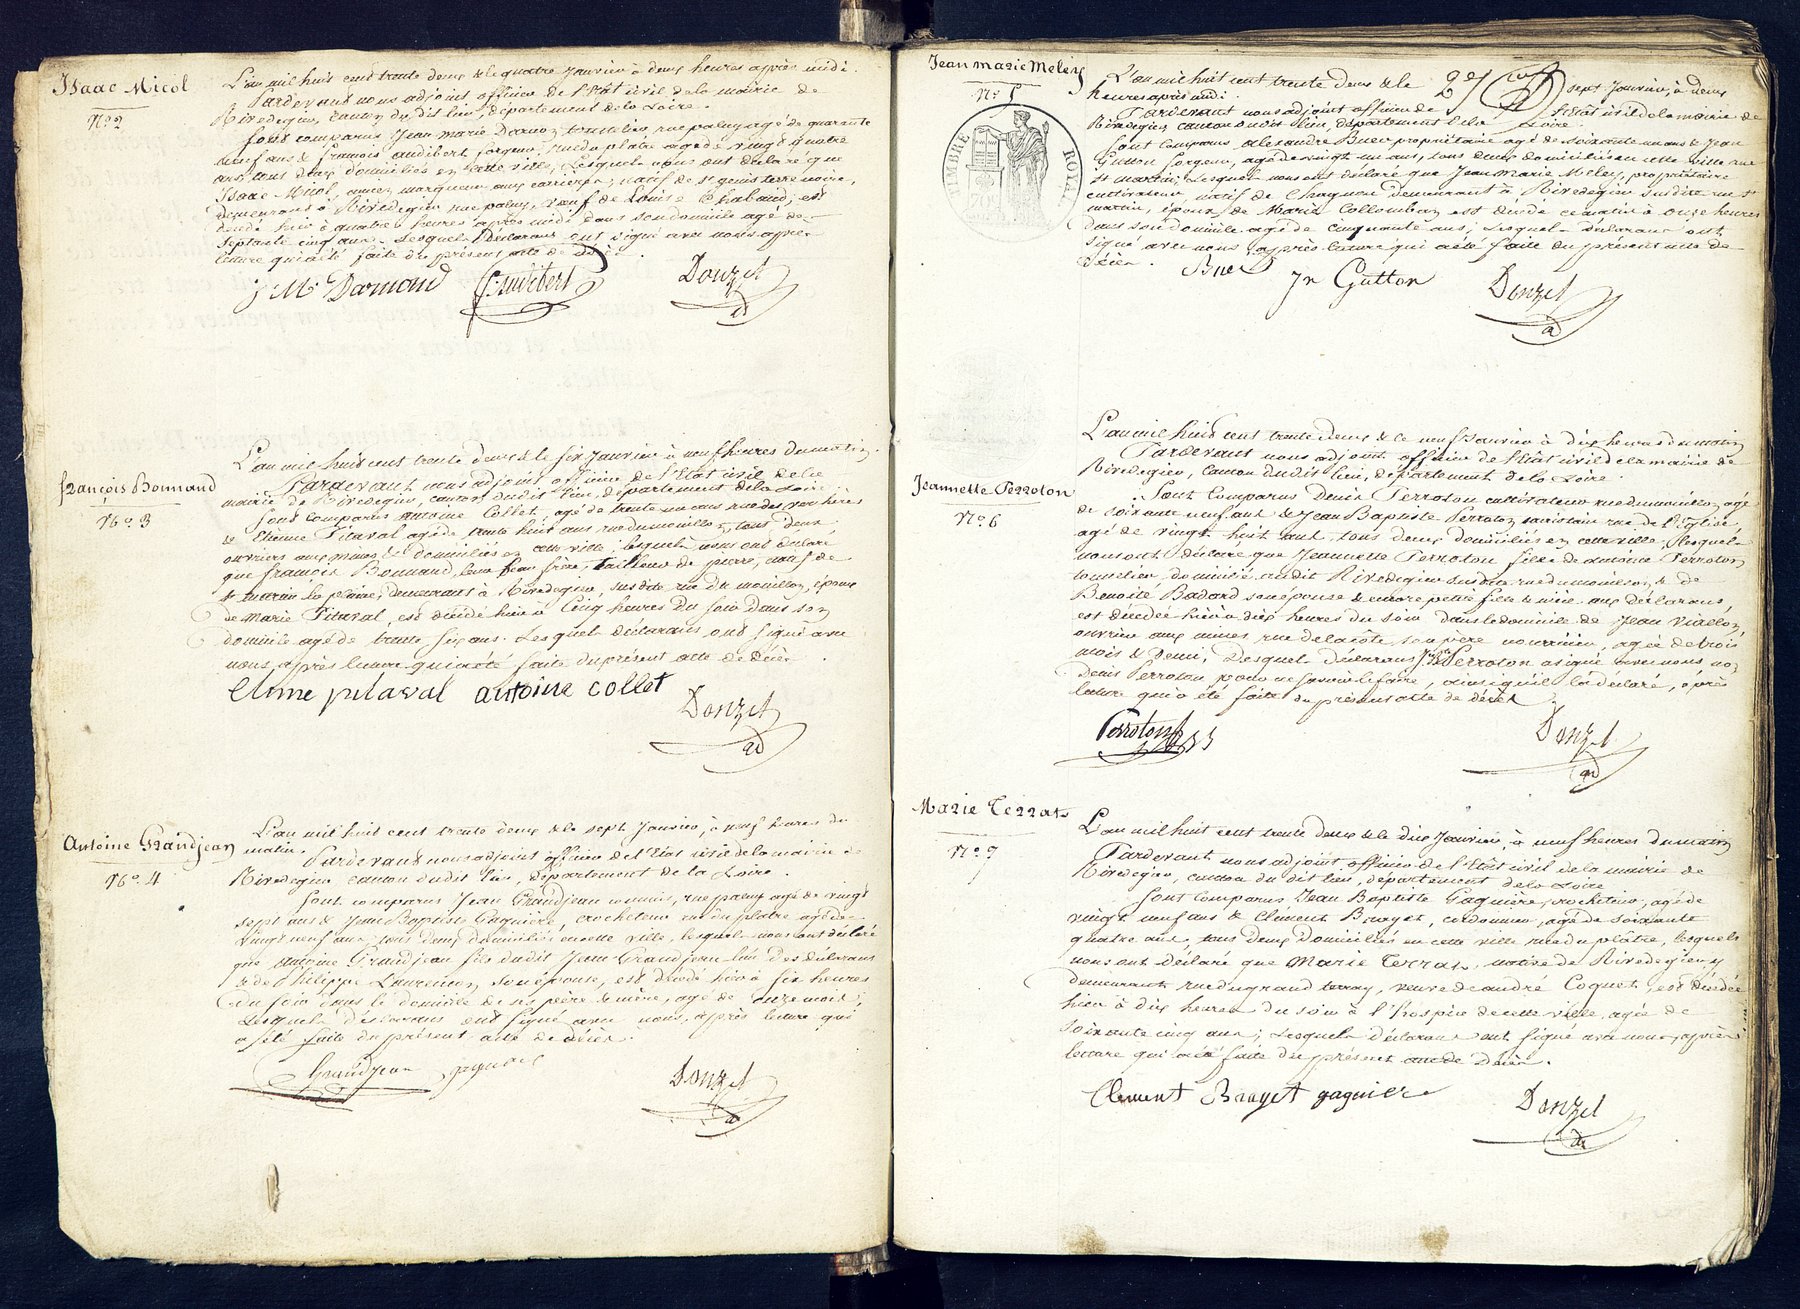 Isaac Micol
N.º 2
L'an mil huit cent trente deux & le quatre Janvier à deux heures après midi
Pardevant nous adjoint officier de l'état civil de la mairie de
Rivedegier, canton du dit lieu, département de la Loire.
Sont comparus Jean Marie Darmon tonnelier, rue paluy agé de quarante
neuf ans & françois audibert forgeur, rue du platre agé de vingt quatre
ans, tous deux domiciliés en cette ville, Lesquels nous ont déclaré que
Isaac Micol, ancien marqueur aux carrières, natif de St genis terre noire,
demeurant à Rivedegier rue paluy, veuf de Louise Chabaud, est
décédé hier à quatre heures après midi dans son domicile agé de
septante cinq ans. Lesquels Déclarans ont signé avec nous après
lecture qui a été faite du présent acte de décès.
J M. Darmond audibert Donzel
ad
François Bonnand
N.º 3
L'an mil huit cent trente deux & le six Janvier à neuf heures du matin.
Pardevant nous adjoint officier de l'Etat civil de la
mairie de Rivedegier, canton du dit lieu, département de la Loire
Sont comparus antoine Collet, agé de trente un ans rue des verrières
& Etienne Pitaval agé de trente huit ans rue du mouillon, tous deux
ouvriers aux mines & domiciliés en cette ville; lesquels nous ont déclaré
que françois Bonnand, leur beau frère, tailleur de pierre, natif de
St martin la plaine, demeurant à Rivedegier, susdite rue du mouillon, époux
de Marie Pitaval, est décédé hier à Cinq heures du soir dans son
domicile agé de trente six ans. Lesquels déclarans ont signé avec
nous après lecture qui a été faite du présent acte de décès.
etiene pitaval antoine collet
Donzel
ad
Antoine Grandjean
N.º 4
L'an mil huit cent trente deux & le sept Janvier, à neuf heures du
matin.
Pardevant nous adjoint officier de l'Etat civil de la mairie de
Rivedegier canton dudit lieu, département de la Loire.
Sont comparus Jean Grandjean commis, rue paluy agé de vingt
sept ans & Jean Baptiste Gagnière, crocheteur rue du platre agé de
vingt neuf ans tous deux domiciliés en cette ville, lesquels nous ont déclaré
que antoine Grandjean fils dudit Jean Grandjean l'un des déclarans
& de Philippe Laurençon son épouse, est décédé hier à six heures
du soir dans le domicile de ses père & mère, agé de onze mois;
Lesquels déclarans ont signé avec nous, après lecture qui
a été faite du présent acte de décès.
Grandjean gagnière
Donzel
ad
Jean marie Meley
N.º 5
TIMBRE ROYAL
L'an mil huit cent trente deux & le sept Janvier, à deux
heures après midi.
Pardevant nous adjoint officier de l'Etat civil de la mairie de
Rivedegier, canton du dit lieu, département de la Loire.
Sont comparus alexandre Buer propriétaire agé de soixante un ans & Jean
Gutton forgeur, agé de vingt un ans, tous deux domiciliés en cette ville rue
St martin; Lesquels nous ont déclaré que Jean Marie Meley, propriétaire
cultivateur natif de Chagnon demeurant à Rivedegier susdite rue St
martin, époux de Marie Collomban est décédé ce matin à onze heures
dans son domicile agé de cinquante ans; Lesquels déclarans ont
signé avec nous après lecture qui a été faite du présent acte de
décès.
Buer Jn Gutton Donzel
ad
Jeannette Perroton
N.º 6
L'an mil huit cent trente deux & le neuf Janvier à dix heures du matin
Pardevant nous adjoint officier de l'état civil de la mairie de
Rivedegier, canton dudit lieu, département de la Loire.
Sont Comparus Denis Perroton cultivateur rue du mouillon, agé
de soixante neuf ans & Jean Baptiste Perroton sacristain rue de l'Eglise,
agé de vingt huit ans, tous deux domiciliés en cette ville, Lesquels
nous ont déclaré que Jeannette Perroton fille de antoine Perroton
tonnelier, domicilié audit Rivedegier susdite rue du mouillon & de
Benoite Badard son épouse & encore petite fille & nièce aux déclarans,
est décédée hier à dix heures du soir dans le domicile de Jean Viallon,
ouvrier aux mines, rue de la côte son père nourricier, agée de trois
mois & demi, Lesquels déclarans Jn Bte Perroton a signé avec nous non
Denis Perroton pour ne savoir le faire, ainsi qu'il l'a déclaré, après
lecture qui a été faite du présent acte de décès
Perroton
Donzel
ad
Marie Terrat
N.º 7
L'an mil huit cent trente deux & le dix Janvier, à neuf heures du matin
Pardevant nous adjoint officier de l'Etat civil de la mairie de
Rivedegier, canton du dit lieu, département de la Loire
Sont comparus Jean Baptiste Gagnière, crocheteur, agé de
vingt neuf ans & Clément Bruyat, cordonnier, agé de soixante
quatre ans, tous deux domiciliés en cette ville rue du plâtre, lesquels
nous ont déclaré que Marie Terrat, native de Rivedegier y
demeurant rue du grand terray, veuve de andré Coquet, est décédée
hier à dix heures du soir à l'hospice de cette ville, agée de
soixante cinq ans; Lesquels déclarans ont signé avec nous, après
lecture qui a été faite du présent acte de décès.
Clement Bruyet gagniere
Donzel
ad